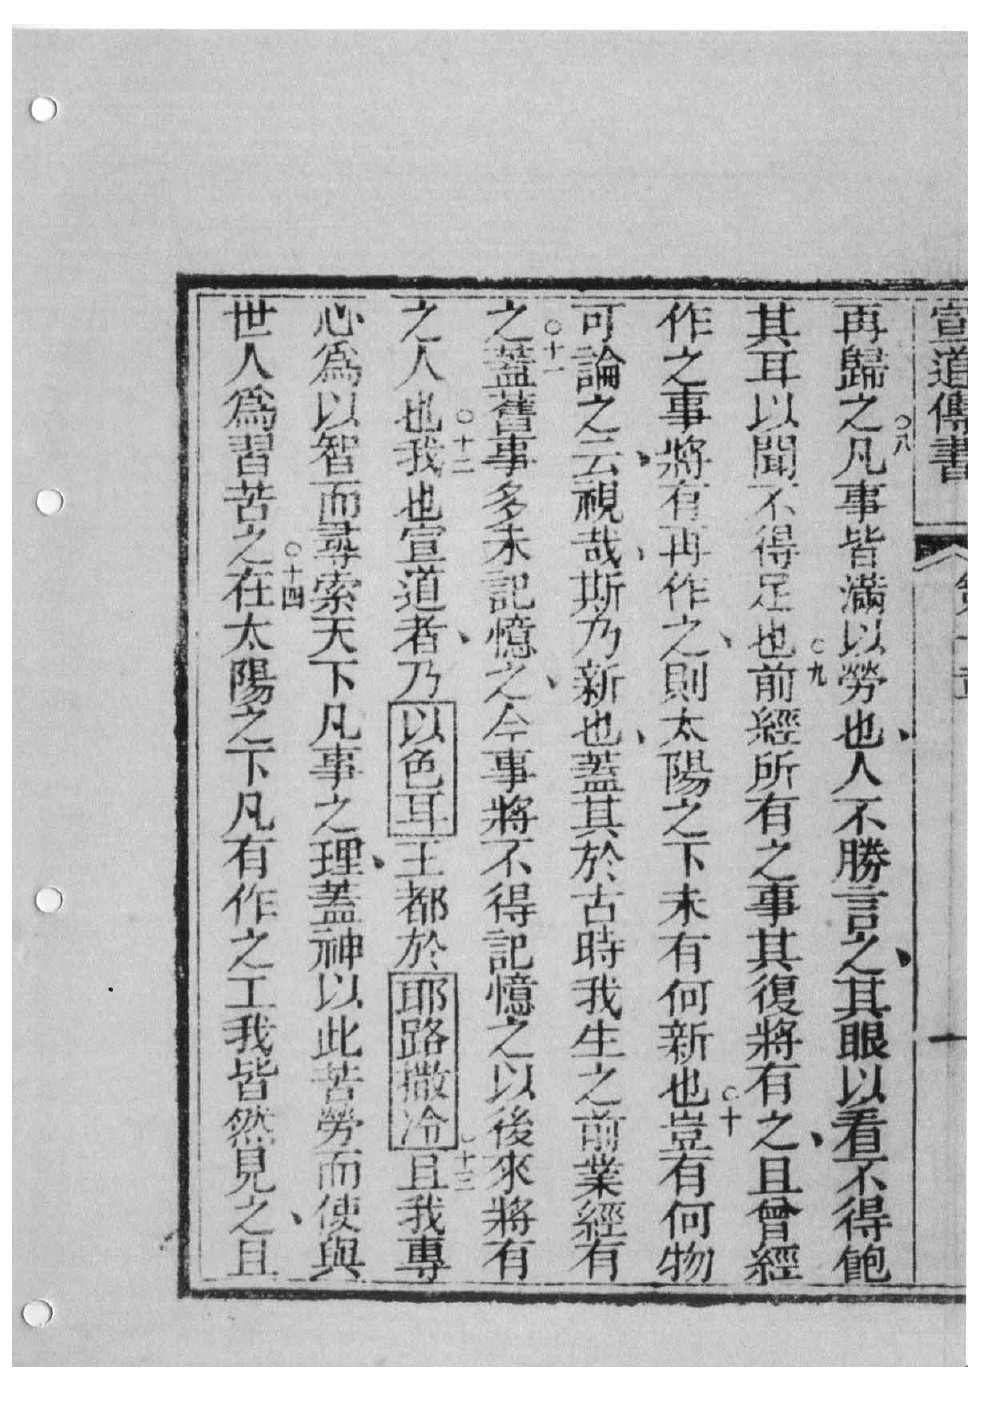 宣道傳書 第一章 一
再歸之○八凡事皆滿以勞也、人不勝言之、其眼以看不得飽
其耳以聞不得足也○九前經所有之事其復將有之、且曾經
作之事將有再作之、則太陽之下未有何新也○十豈有何物
可論之云、視哉、斯乃新也、蓋其於古時我生之前業經有
之○十一蓋舊事多未記憶之、今事將不得記憶之以後來將有
之人也○十二我也宣道者、乃以色耳王都於耶路撒冷○十三且我專
心為以智而尋索天下凡事之理、蓋神以此苦勞而使與
世人為習苦之○十四在太陽之下凡有作之工我皆然見之、且